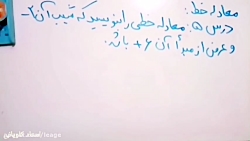 معادله خط:
درس ۵: معادله خطی را بنویسید که شیب آن ۲-
و عرض از مبدأ آن ۶+ باشد.